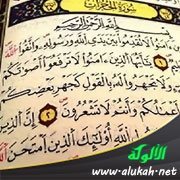 سُورَةُ الْحُجُرَاتِ
بِسْمِ ٱللَّهِ ٱلرَّحْمَٰنِ ٱلرَّحِيمِ
ءَامَنُوا۟ لَا تُقَدِّمُوا۟ بَيْنَ يَدَىِ ٱللَّهِ وَرَسُولِهِۦ وَٱتَّقُوا۟ ٱللَّهَ
ٱلَّذِينَ ءَامَنُوا۟ لَا تَرْفَعُوٓا۟ أَصْوَٰتَكُمْ فَوْقَ
وَلَا تَجْهَرُوا۟ لَهُۥ بِٱلْقَوْلِ كَجَهْرِ بَعْضِكُمْ
أَعْمَٰلُكُمْ وَأَنتُمْ لَا تَشْعُرُونَ ٢ إِنَّ ٱلَّذِينَ
ٱللَّهِ أُو۟لَٰٓئِكَ ٱلَّذِينَ ٱمْتَحَنَ
الألوكة
www.alukah.net